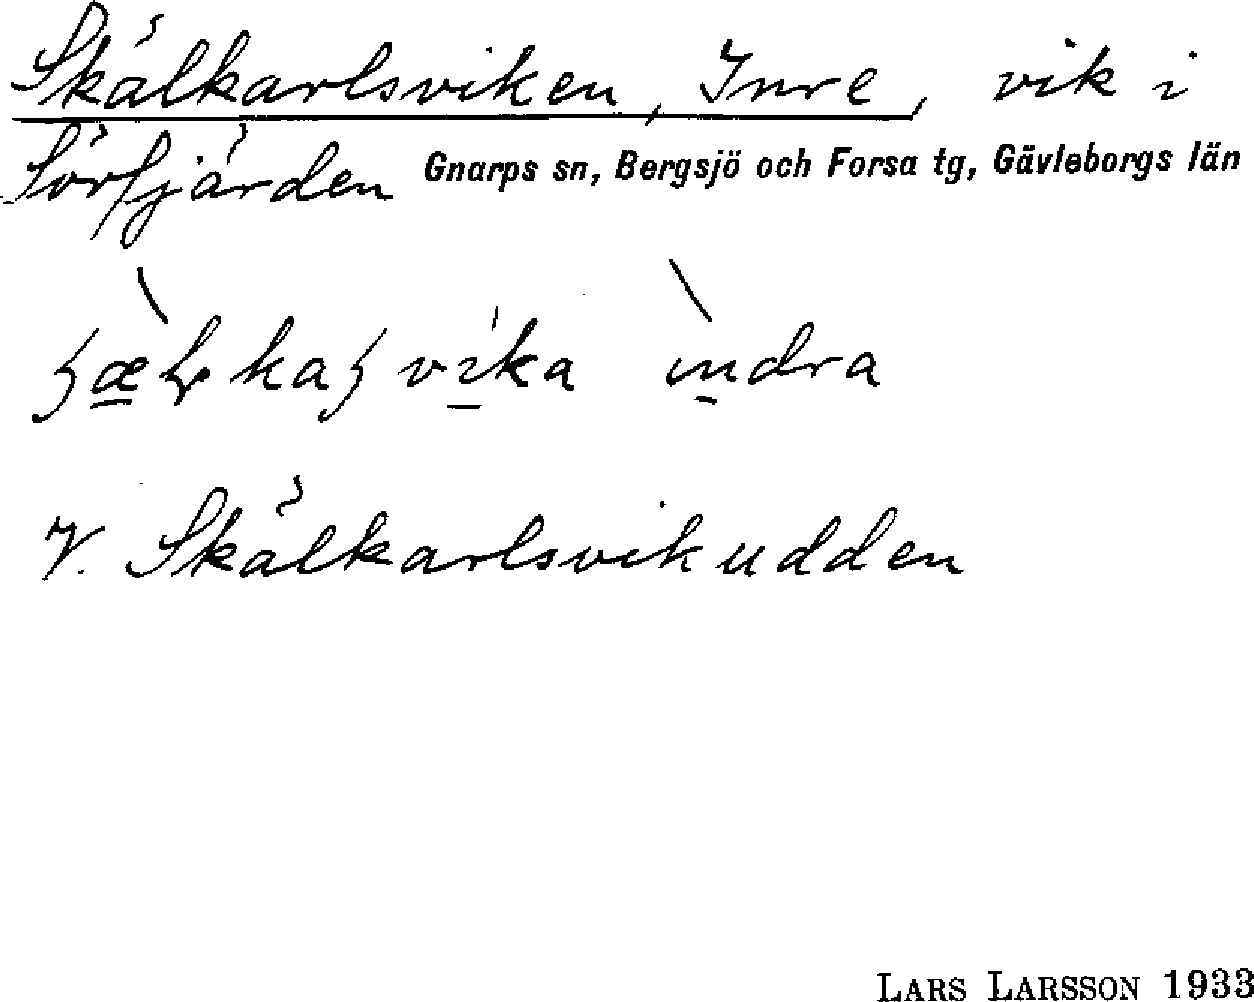 Skälkarlsviken, Inre, vik i
Sörfjärden Gnarps sn, Bergsjö och Forsa tg, Gävleborgs län
ìndra
V. Skälkarlsvikudden
LARS LARSSON 1933